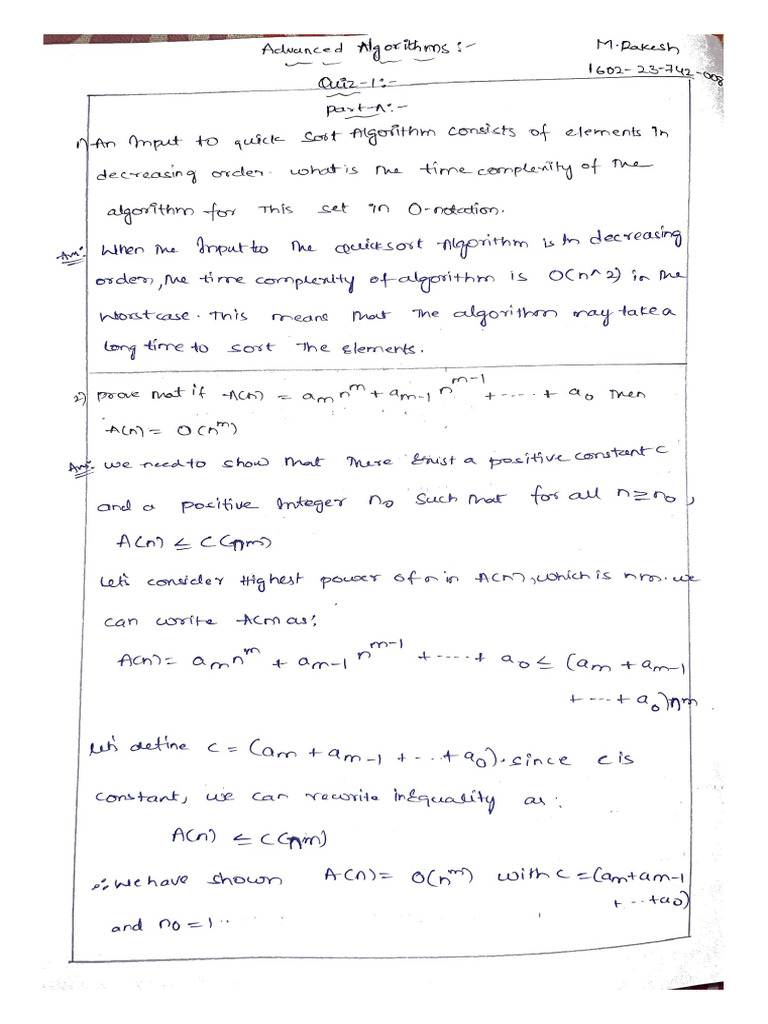 Advanced Algorithms:-
M. Rakesh
1602-23-742-008
Quiz-1:-
Part-A:-
1) An Input to quick Sort Algorithm consists of elements in
decreasing order. what is the time complexity of the
algorithm for this set in O-notation.
Ans: When the Input to the Quicksort Algorithm is In decreasing
order, the time complexity of algorithm is O(n^2) in the
worst case. This means that the algorithm may take a
long time to sort the elements.
2) prove that if A(n) = aₘnᵐ + aₘ₋₁ nᵐ⁻¹ + ----- + a₀ then
A(n) = O(nᵐ)
Ans: we need to show that there Exist a positive constant c
and a positive Integer n₀ such that for all n ≥ n₀,
A(n) ≤ C(nm)
Let's consider Highest power of n in A(n), which is nm. we
can write A(n) as:
A(n) = aₘnᵐ + aₘ₋₁ nᵐ⁻¹ + ----- + a₀ ≤ (aₘ + aₘ₋₁
+ --- + a₀)nm
Let's define c = (aₘ + aₘ₋₁ + -- + a₀). since c is
constant, we can rewrite inEquality as:
A(n) ≤ C(nm)
∴ we have shown A(n) = O(nᵐ) with c = (am+am-1
+ -- +a₀)
and n₀ = 1..